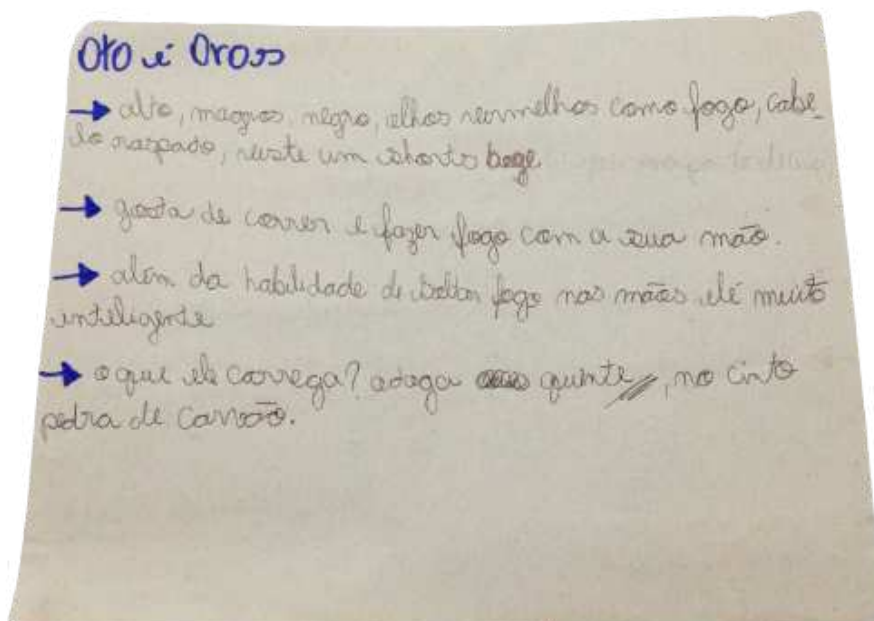 Oto é Oros
→ alto, magros, negro, olhos vermelhos como fogo, cabe-
lo raspado, veste um shorts bege
→ gosta de correr e fazer fogo com a sua mão.
→ além da habilidade de soltar fogo nas mãos ele muito
inteligente
→ o que ele carrega? adaga quente, no cinto
pedra de carvão.